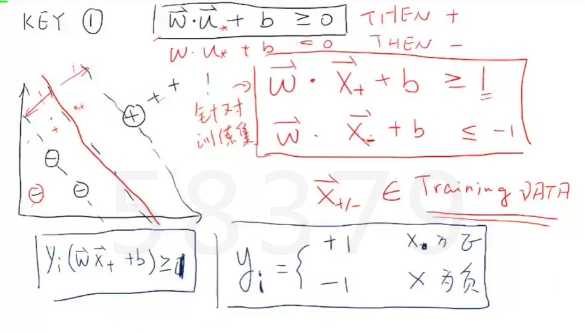 KEY ① w⃗·u⃗* + b ≥ 0 THEN +
w·u* + b ≤ 0 THEN −
! 针对训练集
w⃗ · x⃗₊ + b ≥ 1
w⃗ · x⃗₋ + b ≤ −1
x⃗₊/₋ ∈ Training DATA
yᵢ(w⃗x⃗₊ + b) ≥ 1
yᵢ = { +1 x 为正
−1 x 为负
58379